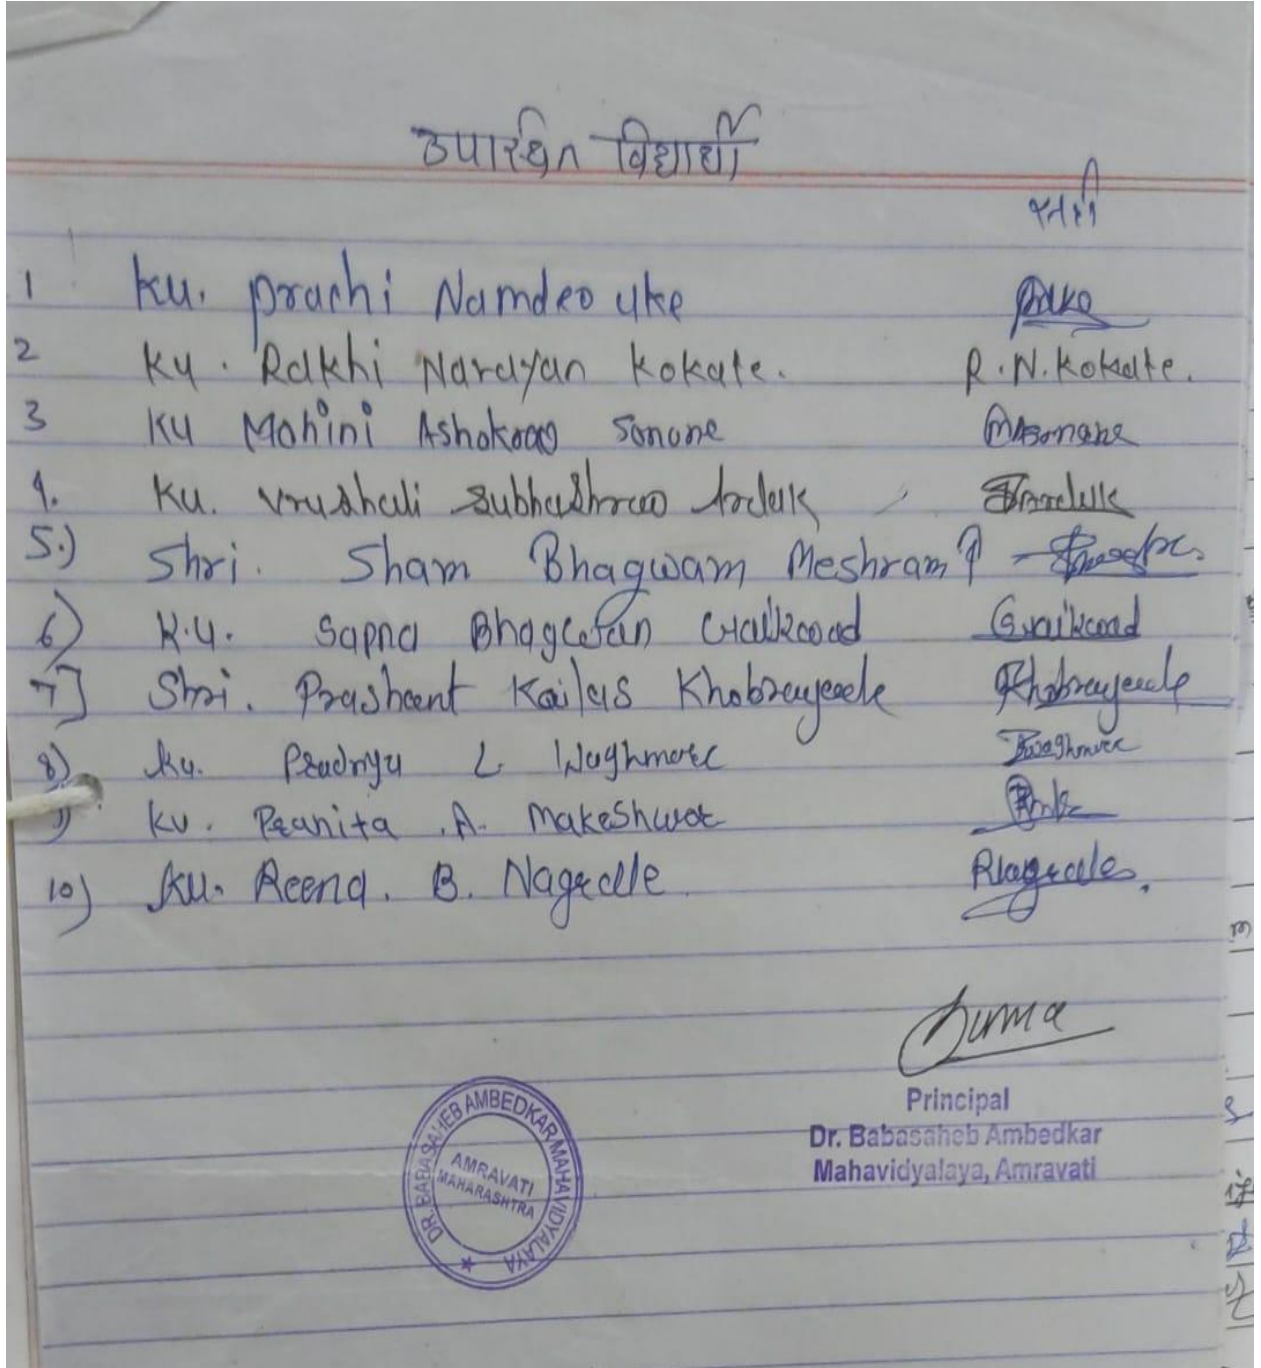 उपस्थित विद्यार्थी
सही
1 Ku. Prachi Namdeo Uke
2 Ku. Rakhi Narayan Kokate. R.N.Kokate.
3 Ku Mohini Ashokrao Sonone MASonone
4. Ku. Vrushali Subhashrao Ardak
5.) Shri. Sham Bhagwam Meshram
6) K.u. Sapna Bhagwan Gaikwad Gaikwad
7] Shri. Prashant Kailas Khobragade Khobragade
8) Ku. Pradnya L Waghmare Pwaghmare
9) Ku. Pranita .A. Makeshwar
10) Ku. Reena. B. Nagrale RNagrale.
Principal
Dr. Babasaheb Ambedkar
Mahavidyalaya, Amravati
DR. BABASAHEB AMBEDKAR MAHAVIDYALAYA
AMRAVATI
MAHARASHTRA